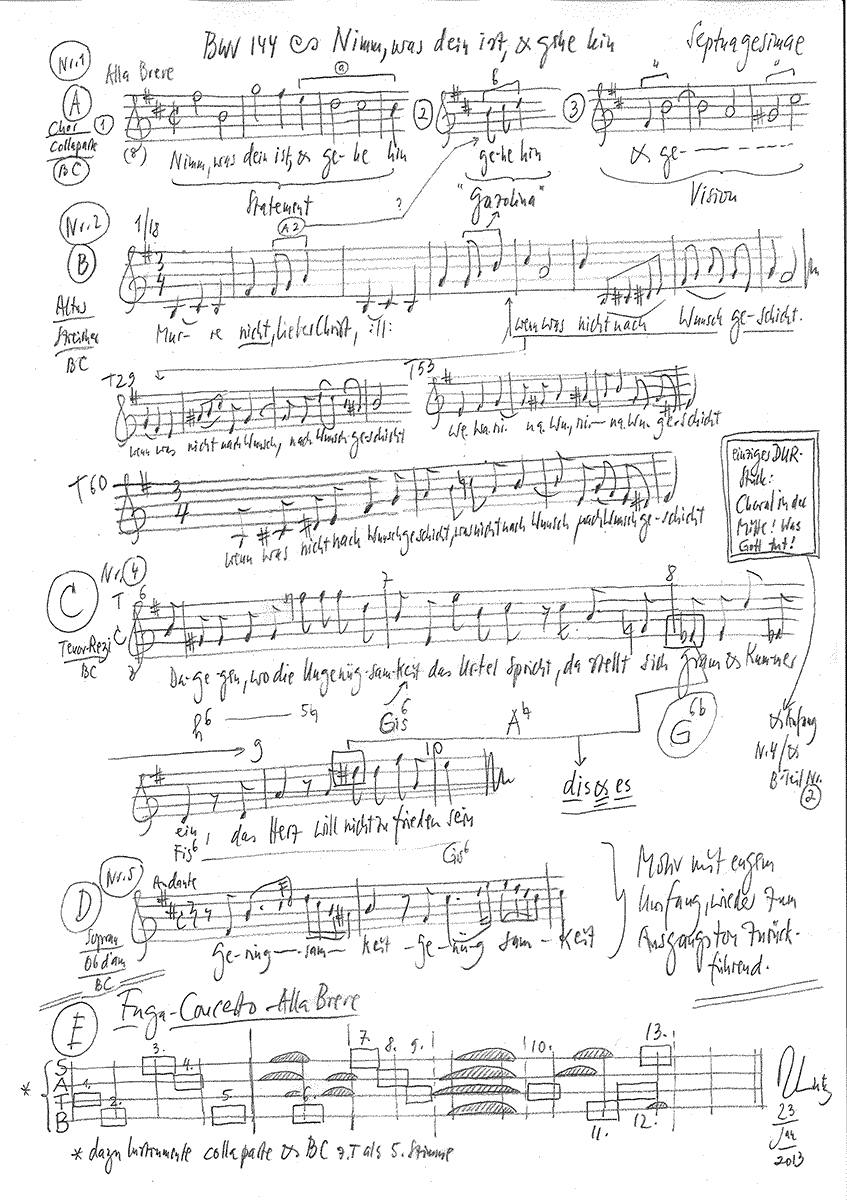 BWV 144 Nimm, was dein ist, & gehe hin Septuagesimae
Nr. 1
Alla Breve
A
Chor
Collaparte
BC
1
2
3
a
6
(8)
Nimm, was dein ist, & ge- he hin
ge-he hin
& ge-
Statement
"Gazolina"
Vision
?
Nr. 2
B
1/18
A2
3
4
Altus
Streicher
BC
Mur- re nicht, lieber Christ, ill:
wenn was nicht nach Wunsch ge-schicht.
T29
wenn was nicht nach Wunsch, nach Wunsch ge-schicht
T53
we. wa. ni. na. Wu, ni- na. Wu. ge-schicht
T60
3
4
wenn was nicht nach Wunsch geschicht, was nicht nach Wunsch nach Wunsch ge-schicht
einziges DUR-
Stück:
Choral in der
Mitte! Was
Gott tut!
Nr. 4
C
Tenor-Rezi
BC
T
C
6
7
8
8
Da-ge-gen, wo die Ungenüg-sam-keit das Urtel spricht, da stellt sich gram & Kummer
h6
5
Gis6
A
G 6b
& Anfang
N. 4/&
B-Teil Nr.
2
9
10
dis & es
ein, das Herz will nicht zufrieden sein
Fis6
Gis6
Nr. 5
D
Andante
Sopran
Ob d'am
BC
Ge-nüg-sam-keit -ge-nüg sam-keit
Motiv mit engem
Umfang, wieder zum
Ausgangston zurück-
führend.
E
Fuga-Concerto-Alla Breve
*
S
A
T
B
1.
2.
3.
4.
5.
6.
7.
8.
9.
10.
11.
12.
13.
* dazu Instrumente collaparte & BC z.T als 5. Stimme
RLutz
23
Jan
2013